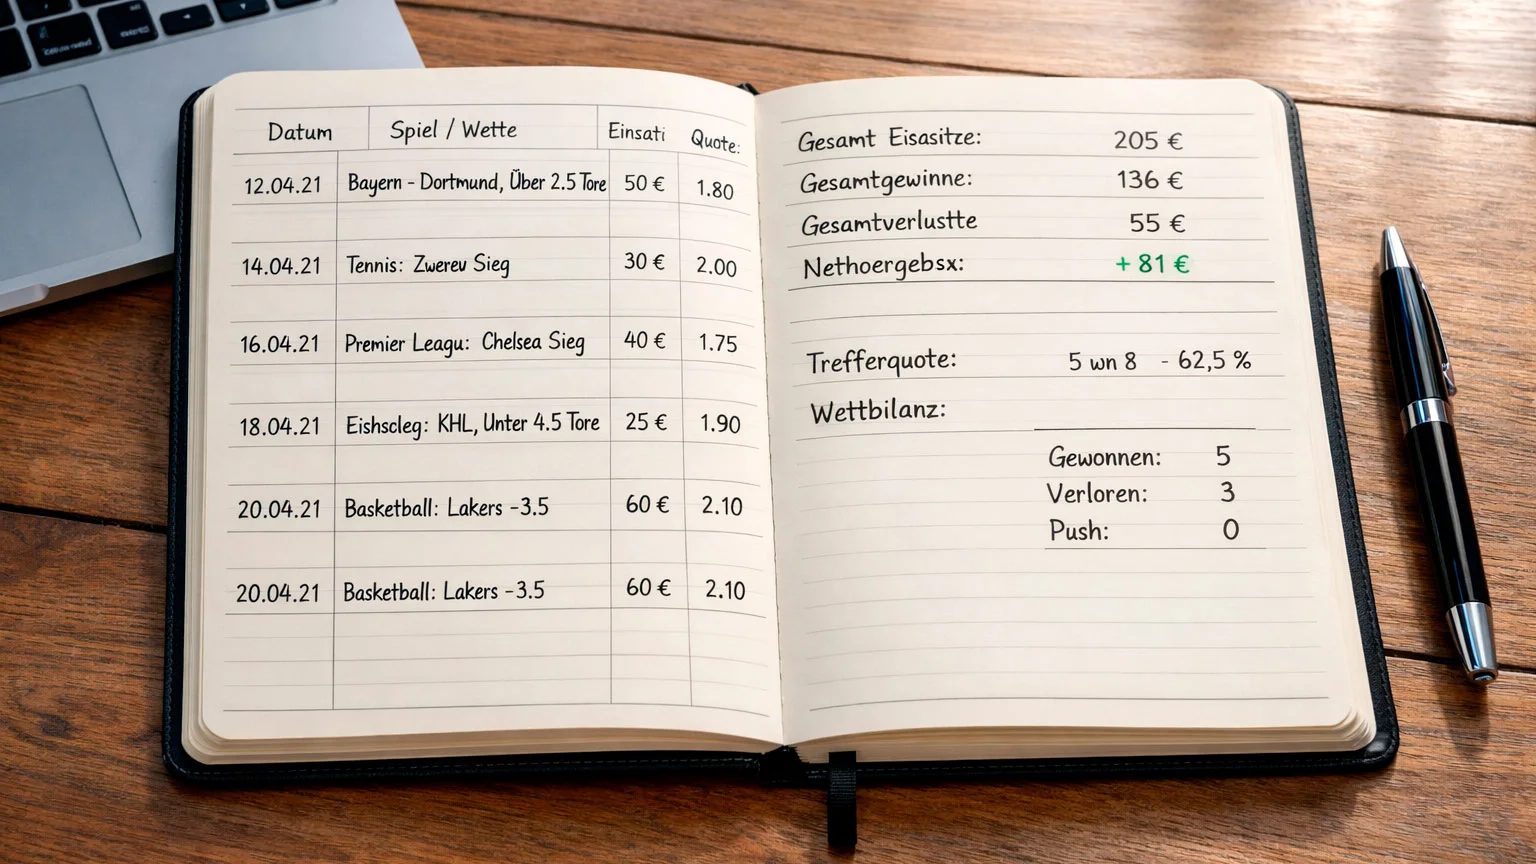 Datum Spiel / Wette Einsati Quote:
12.04.21 Bayern - Dortmund, Über 2.5 Tore 50 € 1.80
14.04.21 Tennis: Zwerev Sieg 30 € 2.00
16.04.21 Premier Leagu: Chelsea Sieg 40 € 1.75
18.04.21 Eishscleg: KHL, Unter 4.5 Tore 25 € 1.90
20.04.21 Basketball: Lakers -3.5 60 € 2.10
20.04.21 Basketball: Lakers -3.5 60 € 2.10
Gesamt Eisasitze: 205 €
Gesamtgewinne: 136 €
Gesamtverlustte 55 €
Nethoergebsx: + 81 €
Trefferquote: 5 wn 8 - 62,5 %
Wettbilanz:
Gewonnen: 5
Verloren: 3
Push: 0